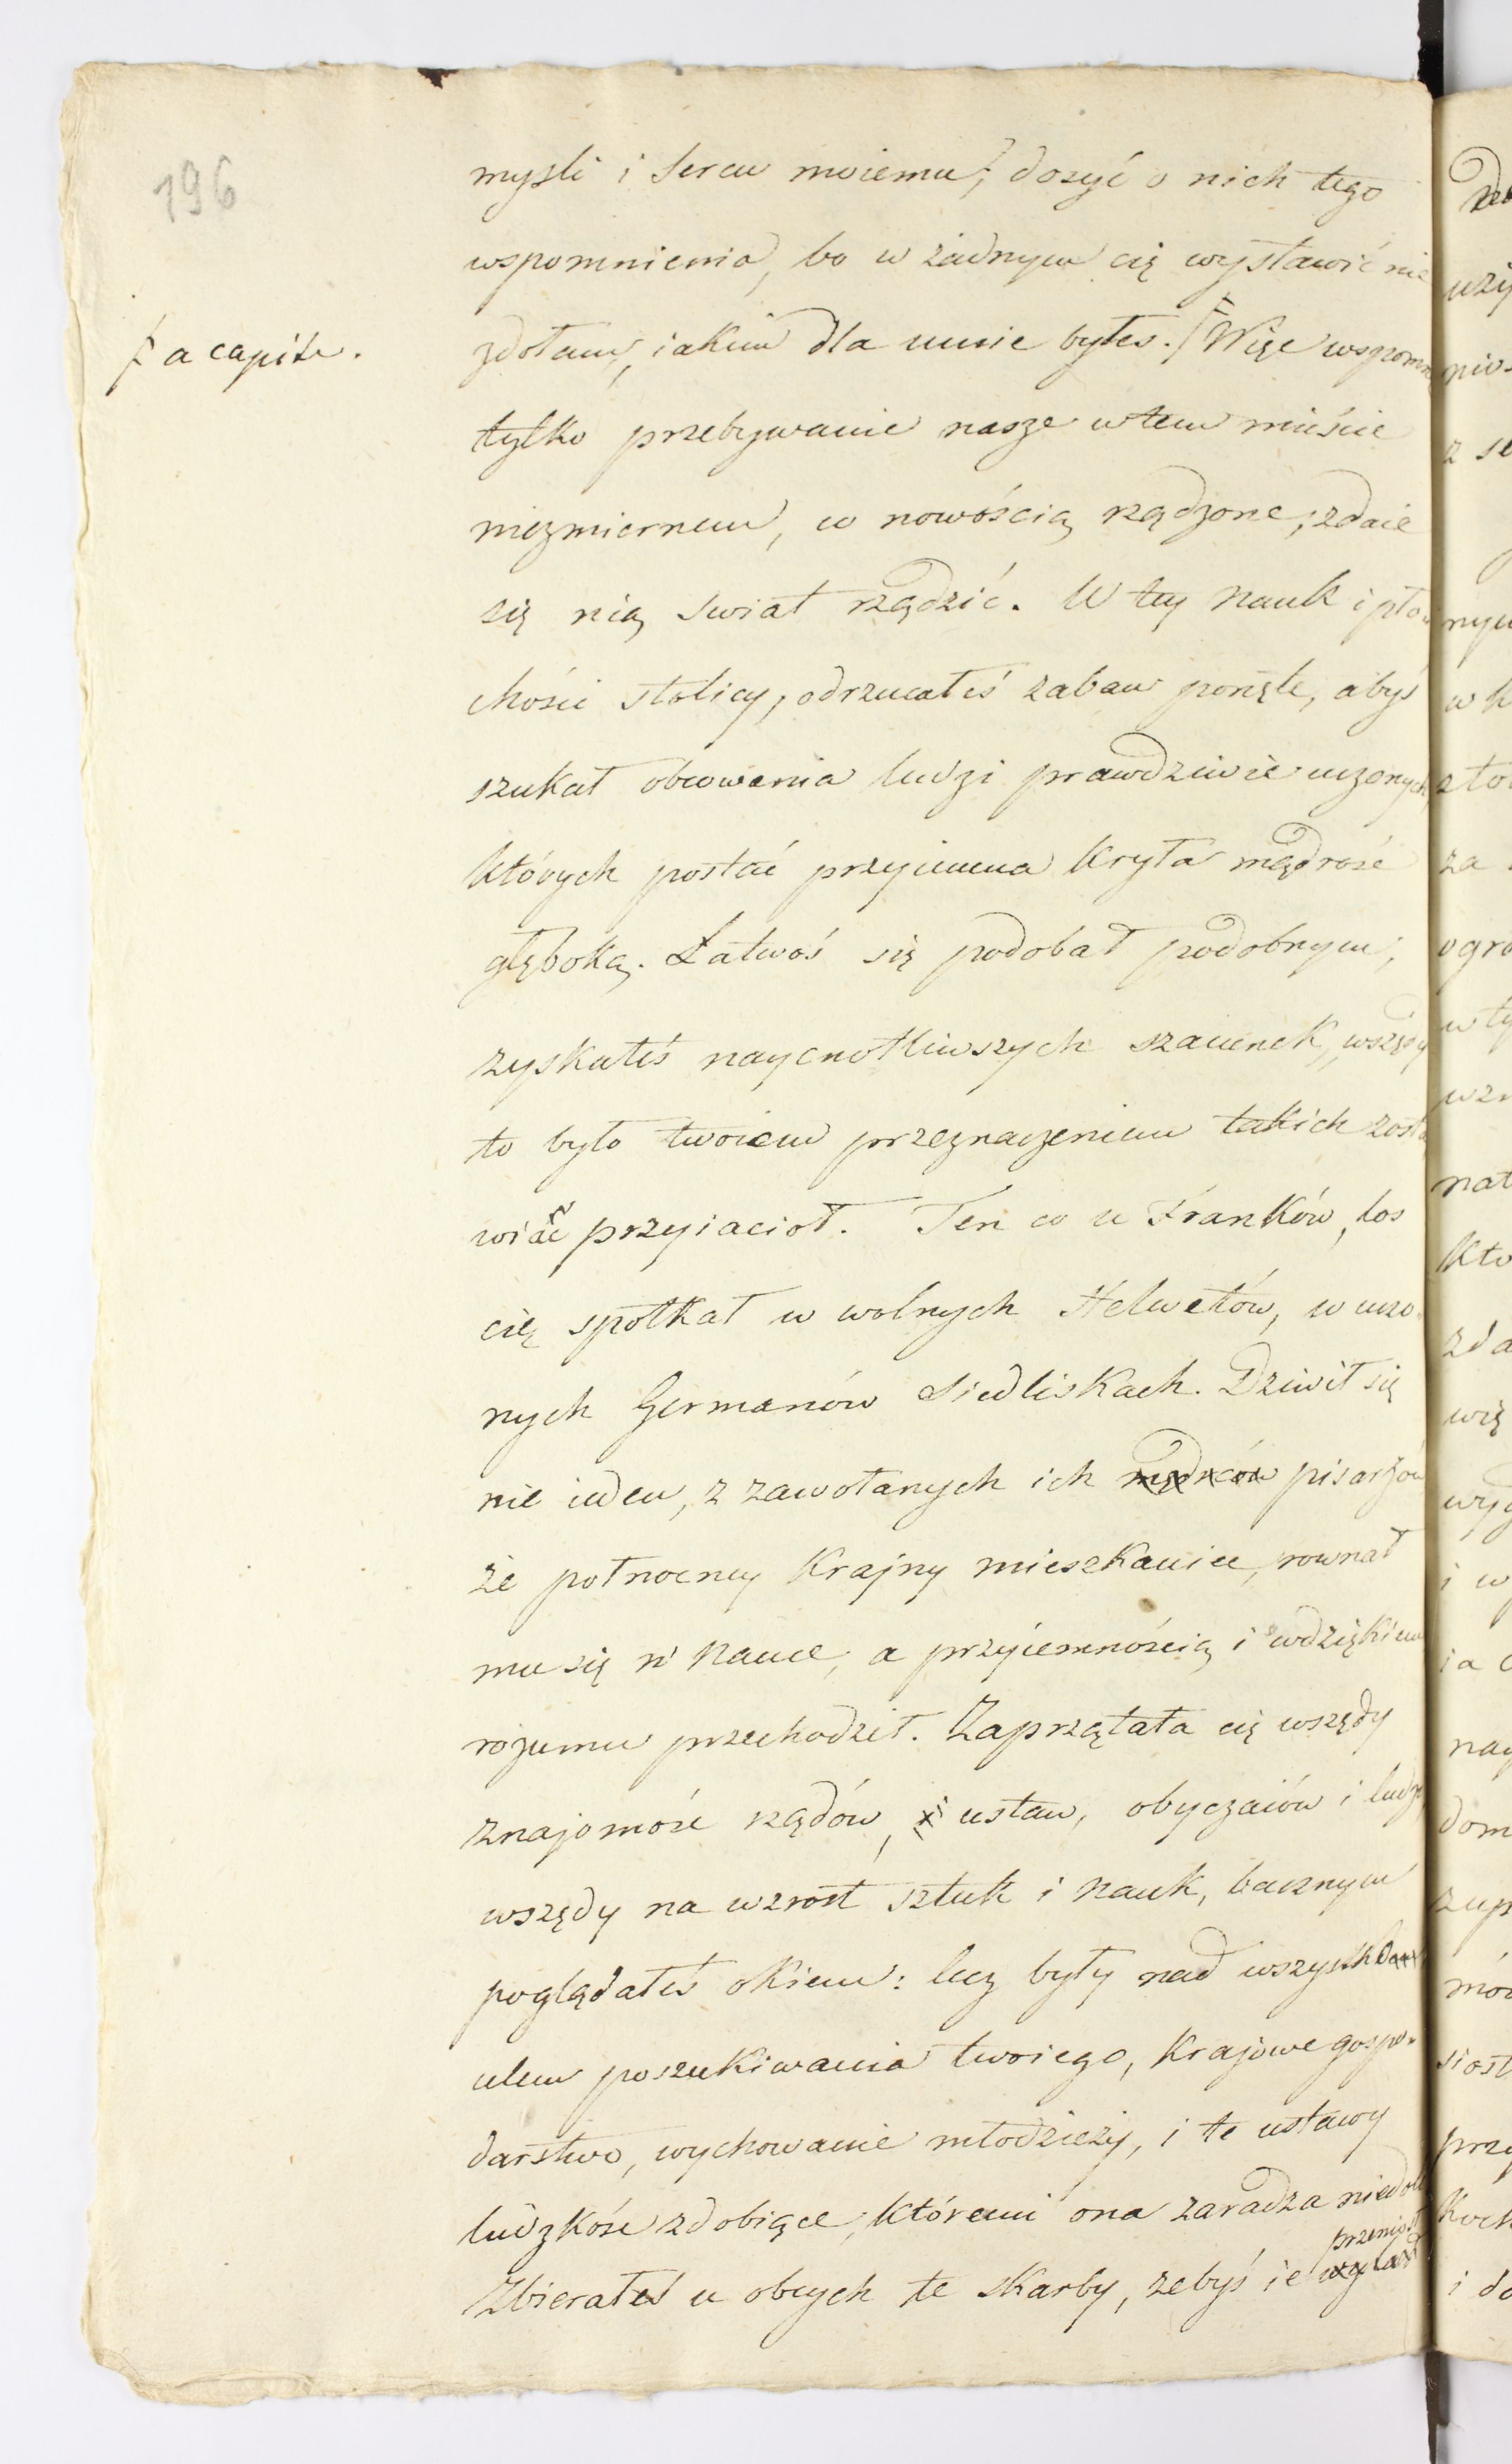 196
mysli i sercu moiemu; dosyć o nich tego
wspomnienia, bo w żadnym cię wystawić nie
ꝉ a capite.
zdołam, iakim dla mnie byłes. Więc wspomnę
tylko przebywanie nasze w tem mieście
niezmiernem, co nowością rządzone, zdaie
się nią swiat rządzić. W tey nauk i pło-
chości stolicy, odrzucałeś zabaw ponętę, abyś
szukał obcowania ludzi prawdziwie uczonych,
których postać przyiemna kryła mądrość
głęboką. Łatwoś się podobał podobnym,
zyskałeś naycnotliwszych szacunek, wszędy
to było twoiem przeznaczeniem takich zosta
wiać przyiacioł. Ten co u Franków, los
cię spotkał w wolnych Helwetów, w uczo-
nych Germanów siedliskach. Dziwił się
nie ieden, z zawołanych ich mędrców pisarzów
że połnocney krajny mieszkaniec, rownał
mu się w nauce, a przyiemnością i wdziękiem
rozumu przechodził. Zaprzątała cię wszędy
znajomość rządów, i ustaw, obyczaiów i ludzi,
wszędy na wzrost sztuk i nauk, bacznym
poglądałeś okiem: lecz były nad wszystko
celem poszukiwania twoiego, krajowe gospo-
darstwo, wychowanie młodzieży, i te ustawy
ludzkość zdobiące, któremi ona zaradza niedoli
przeniosł
Zbierałeś u obcych te skarby, żebyś ie